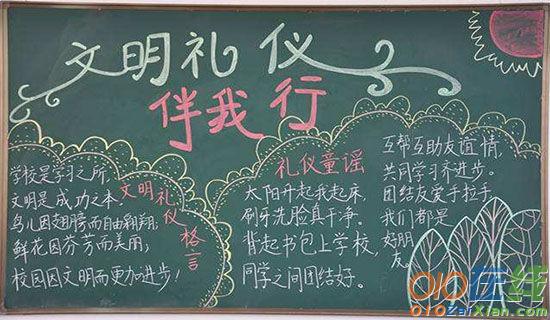 文明礼仪
伴我行
学校是学习之所,
文明是成功之本。
鸟儿因翅膀而自由翱翔,
鲜花因芬芳而美丽;
校园因文明而更加进步!
文明礼仪格言
礼仪童谣
太阳升起我起床,
刷牙洗脸真干净。
背起书包上学校,
同学之间团结好。
互帮互助友谊情,
共同学习齐进步。
团结友爱手拉手,
我们都是
好朋友。
010在线
010ZaiXian.com